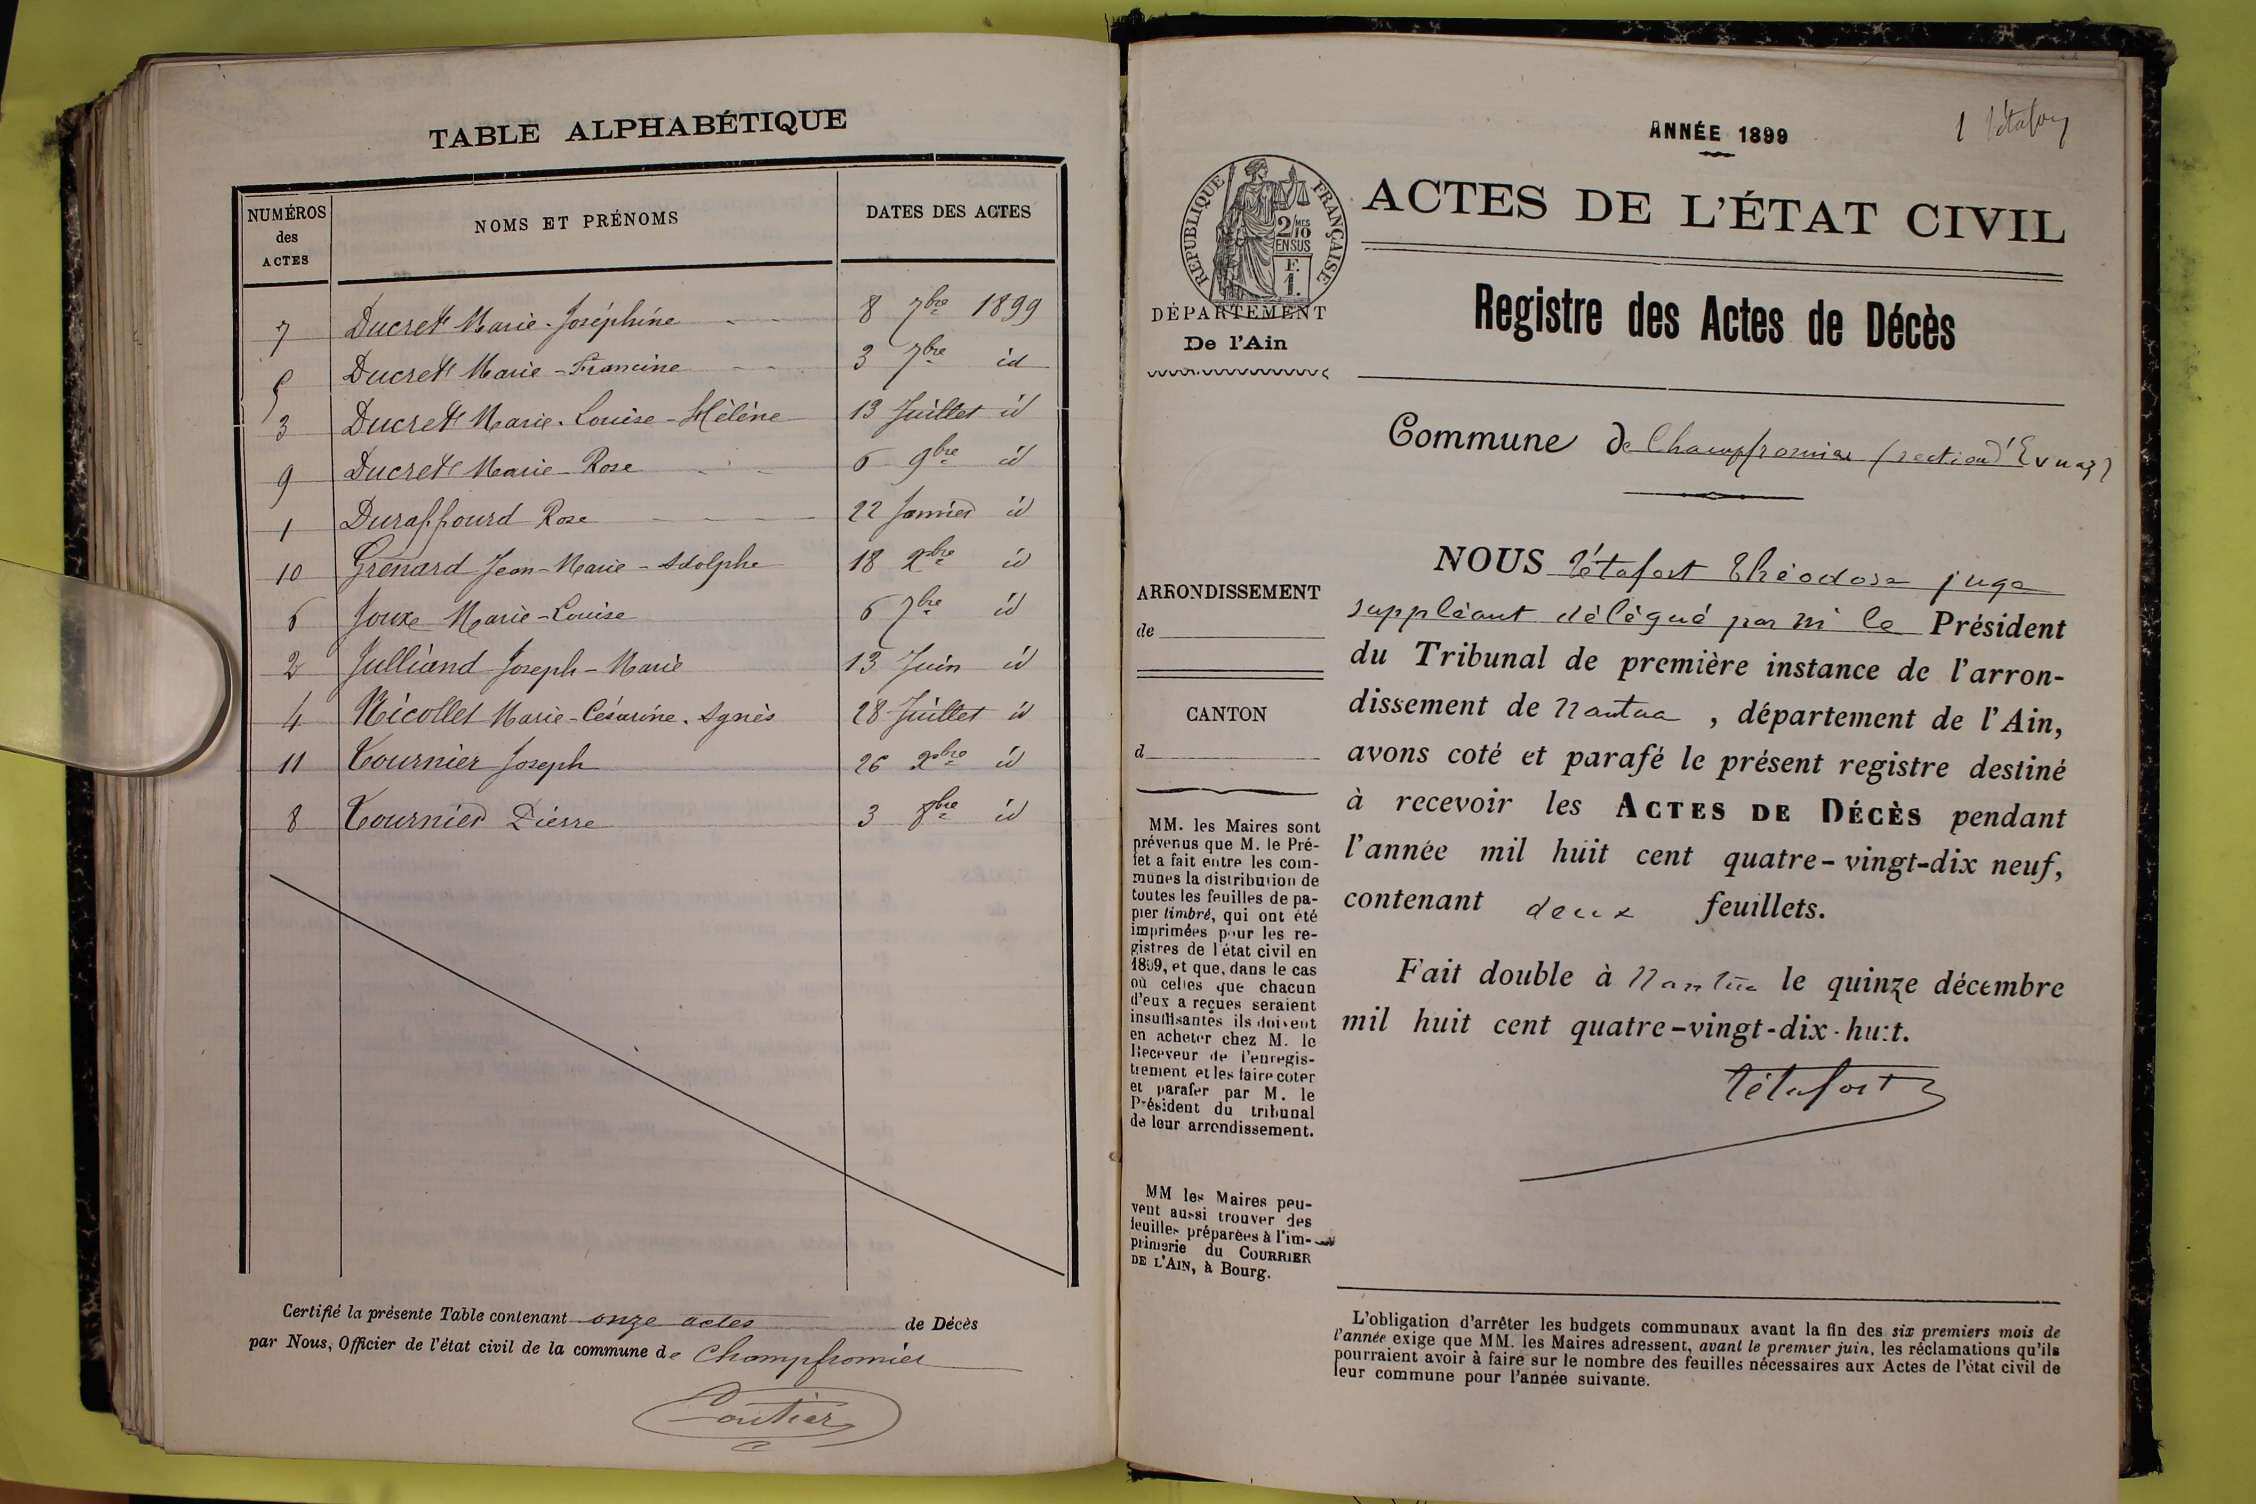 TABLE ALPHABÉTIQUE
NUMÉROS des ACTES NOMS ET PRÉNOMS DATES DES ACTES
7 Ducret Marie-Joséphine 8 7bre 1899
5 Ducret Marie-Francine 3 7bre id
3 Ducret Marie-Louise-Hélène 13 Juillet id
9 Ducret Marie-Rose 6 9bre id
1 Duraffourd Rose 22 Janvier id
10 Grenard Jean-Marie-Adolphe 18 Xbre id
6 Joux Marie-Louise 6 7bre id
2 Julliand Joseph-Marie 13 Juin id
4 Nicollet Marie-Césarine-Agnès 28 Juillet id
11 Tournier Joseph 26 Xbre id
8 Tournier Pierre 3 8bre id
Certifié la présente Table contenant onze actes de Décès
par Nous, Officier de l'état civil de la commune de Champfromier
1 Tétafort
ANNÉE 1899
RÉPUBLIQUE FRANÇAISE
2/10 MES
EN SUS
F.
1.
ACTES DE L'ÉTAT CIVIL
DÉPARTEMENT
De l'Ain
Registre des Actes de Décès
Commune de Champfromier (section d'Evuaz)
ARRONDISSEMENT
de
CANTON
d
MM. les Maires sont
prévenus que M. le Pré-
fet a fait entre les com-
munes la distribution de
toutes les feuilles de pa-
pier timbré, qui ont été
imprimées pour les re-
gistres de l'état civil en
1899, et que, dans le cas
où celles que chacun
d'eux a reçues seraient
insuffisantes ils doivent
en acheter chez M. le
Receveur de l'enregis-
trement et les faire coter
et parafer par M. le
Président du tribunal
de leur arrondissement.
MM les Maires peu-
vent aussi trouver des
feuilles préparées à l'im-
primerie du COURRIER
DE L'AIN, à Bourg.
NOUS Tétafort Théodose juge
suppléant délégué par M le Président
du Tribunal de première instance de l'arron-
dissement de Nantua, département de l'Ain,
avons coté et parafé le présent registre destiné
à recevoir les ACTES DE DÉCÈS pendant
l'année mil huit cent quatre-vingt-dix neuf,
contenant deux feuillets.
Fait double à Nantua le quinze décembre
mil huit cent quatre-vingt-dix-huit.
Tétafort
L'obligation d'arrêter les budgets communaux avant la fin des six premiers mois de
l'année exige que MM. les Maires adressent, avant le premier juin, les réclamations qu'ils
pourraient avoir à faire sur le nombre des feuilles nécessaires aux Actes de l'état civil de
leur commune pour l'année suivante.